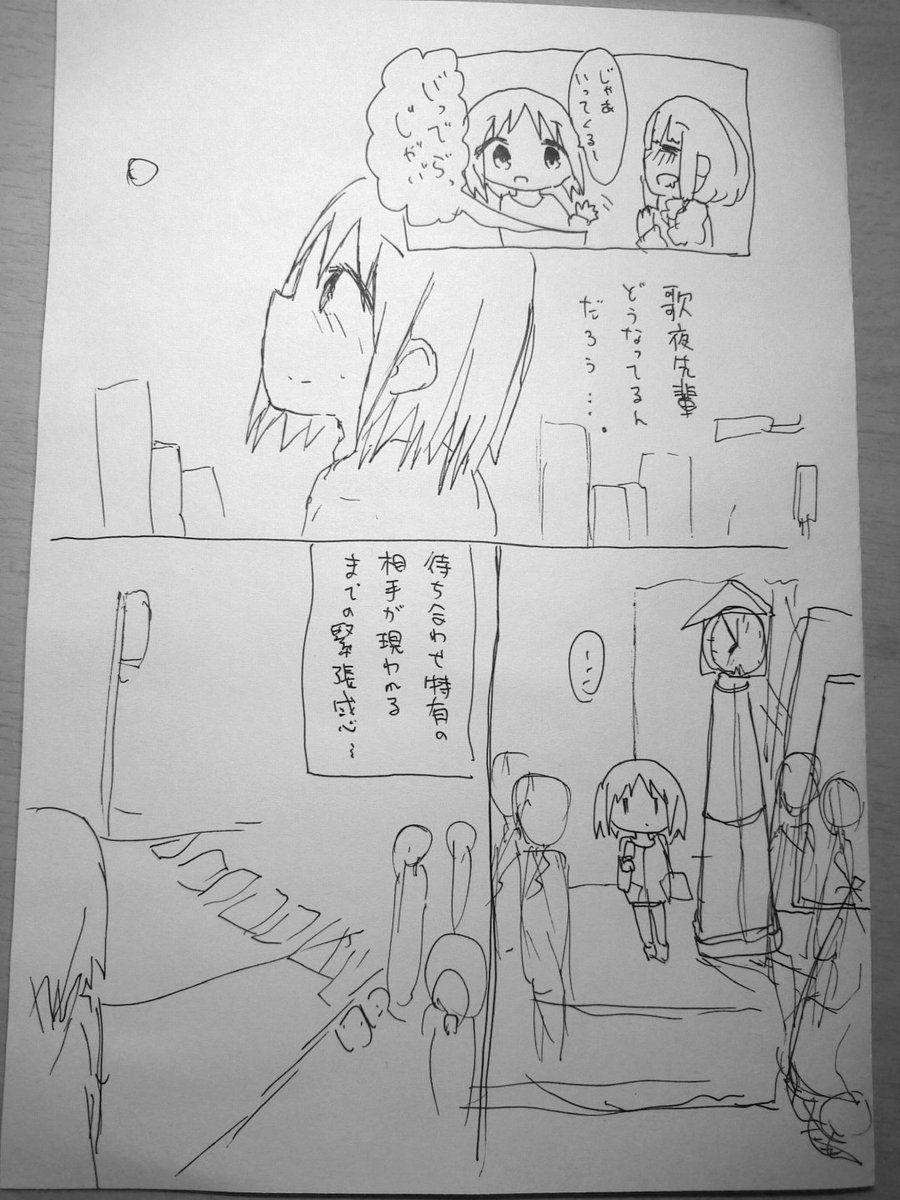 じゃあ
いってくる〜
いっでらっ
じゃい
歌夜先輩
どうなってるん
だろう…。
…
待ち合わせ特有の
相手が現われる
までの緊張感〜